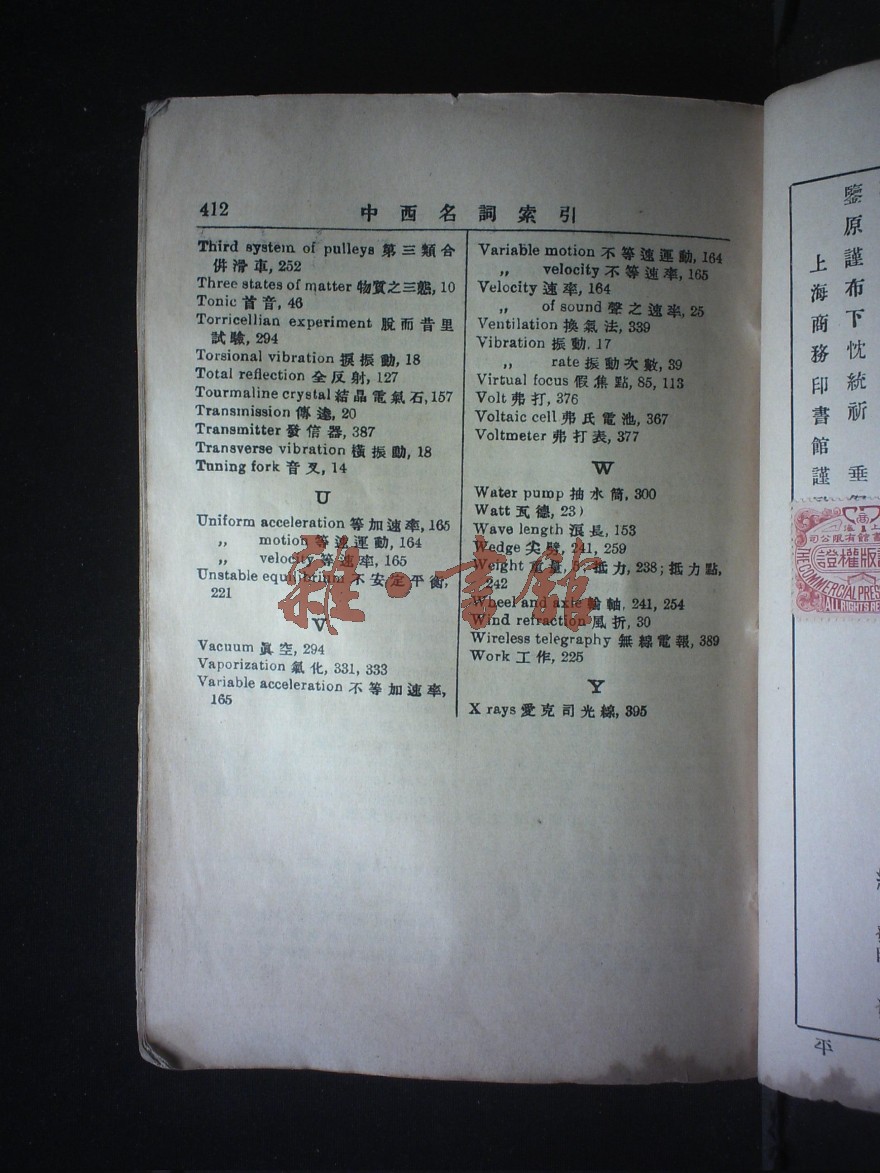 412
中西名詞索引
Third system of pulleys 第三類合
併滑車, 252
Three states of matter 物質之三態, 10
Tonic 首音, 46
Torricellian experiment 脫而昔里
試驗, 294
Torsional vibration 捩振動, 18
Total reflection 全反射, 127
Tourmaline crystal 結晶電氣石, 157
Transmission 傳遞, 20
Transmitter 發信器, 387
Transverse vibration 橫振動, 18
Tuning fork 音叉, 14
U
Uniform acceleration 等加速率, 165
„ motion 等速運動, 164
„ velocity 等速率, 165
Unstable equilibrium 不安定平衡,
221
V
Vacuum 眞空, 294
Vaporization 氣化, 331, 333
Variable acceleration 不等加速率,
165
Variable motion 不等速運動, 164
„ velocity 不等速率, 165
Velocity 速率, 164
„ of sound 聲之速率, 25
Ventilation 換氣法, 339
Vibration 振動, 17
„ rate 振動次數, 39
Virtual focus 假焦點, 85, 113
Volt 弗打, 376
Voltaic cell 弗氏電池, 367
Voltmeter 弗打表, 377
W
Water pump 抽水筒, 300
Watt 瓦德, 23)
Wave length 浪長, 153
Wedge 尖劈, 241, 259
Weight 重量, 6; 抵力, 238; 抵力點,
242
Wheel and axle 輪軸, 241, 254
Wind refraction 風折, 30
Wireless telegraphy 無線電報, 389
Work 工作, 225
Y
X rays 愛克司光線, 395
雜·書館
鑒原謹布下忱統祈 垂
上海商務印書館謹
書館有限公司
證權版
THE COMMERCIAL PRES
ALL RIGHTS RE